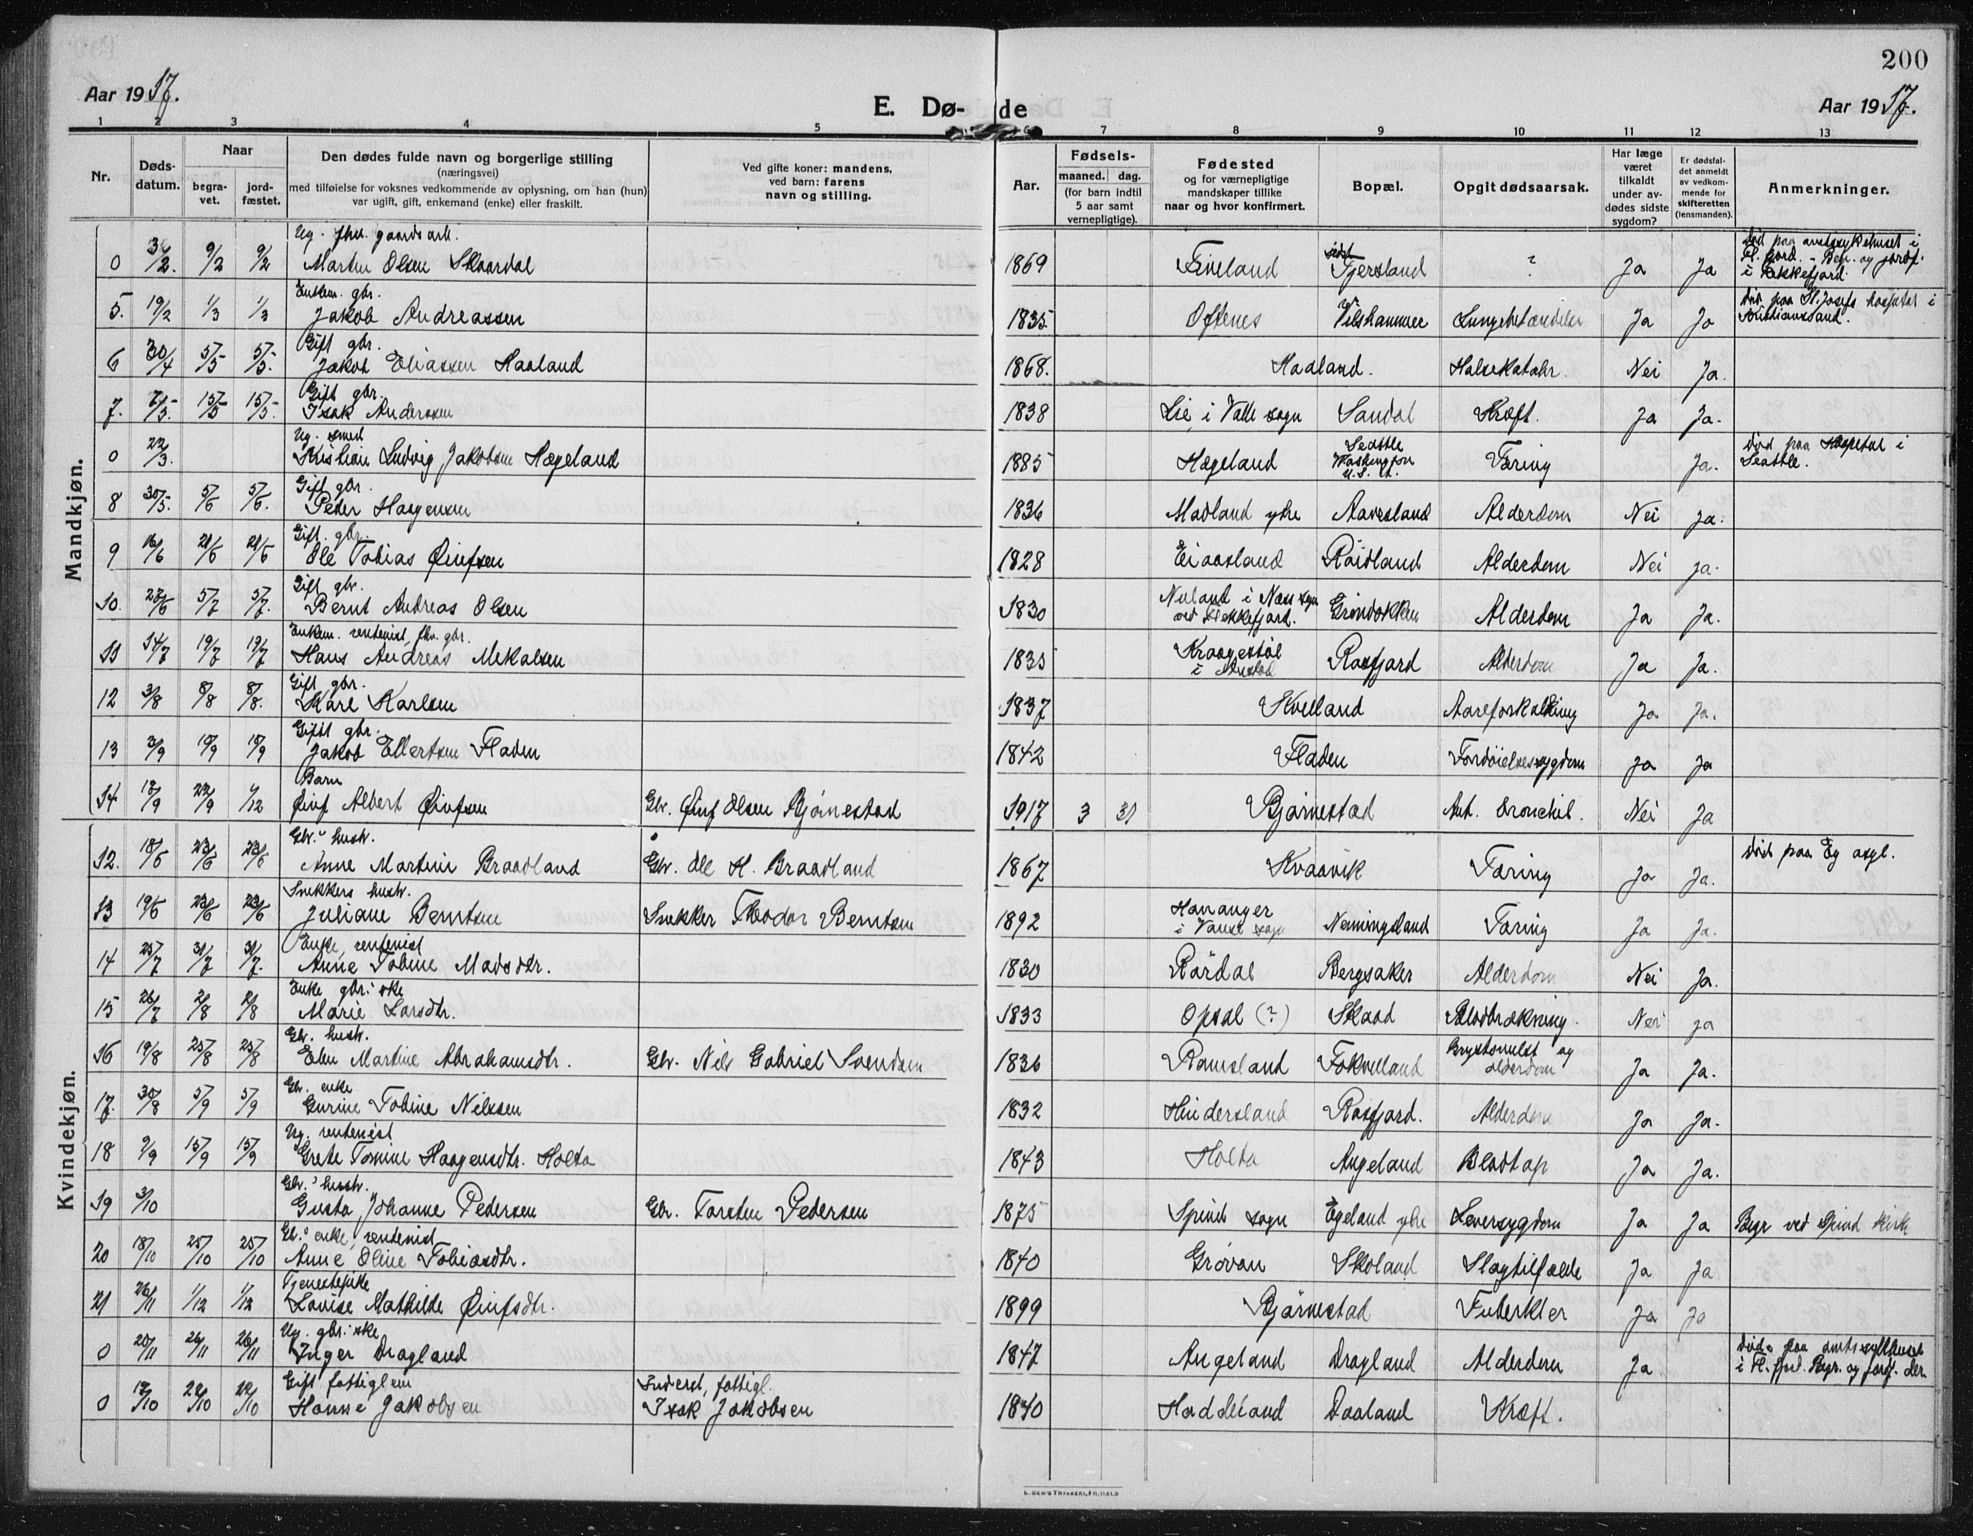 200
Aar 1917.
E. Dø-
de
Aar 1917.
1 2 3 4 5 6 7 8 9 10 11 12 13
Nr.
Døds-
datum.
Naar
begra-
vet.
jord-
fæstet.
Den dødes fulde navn og borgerlige stilling
(næringsvei)
med tilføielse for voksnes vedkommende av oplysning, om han (hun)
var ugift, gift, enkemand (enke) eller fraskilt.
Ved gifte koner: mandens,
ved barn: farens
navn og stilling.
Aar.
Fødsels-
maaned. dag.
(for barn indtil
5 aar samt
vernepligtige).
Fødested
og for værnepligtige
mandskaper tillike
naar og hvor konfirmert.
Bopæl.
Opgit dødsaarsak.
Har læge
været
tilkaldt
under av-
dødes sidste
sygdom?
Er dødsfal-
det anmeldt
av vedkom-
mende for
skifteretten
(lensmanden).
Anmerkninger.
Mandkjøn.
Ug. fhv. gaardsarb.
0 9/2 9/2 Martin Olsen Skaardal 1869 Fiveland Fjersland ? Ja Ja
Død paa amtssykehuset i
Fl.fjord. - Begr. og jordf.
i Flekkefjord.
Enkem. gbr.
5. 19/2 1/3 1/3 Jakob Andreassen 1835 Oftenes Vilshammer Lungebetændelse Ja Ja
Død paa St. Josefs hospital i
Kristianssand.
Gift gbr.
6 30/4 5/5 5/5. Jakob Eliassen Haaland 1868. Haaland. Halsekatahr. Nei Ja.
Gift gbr.
7. 7/5. 15/5 15/5. Isak Anderssen 1838 Lie i Valle sogn Sandal Kræft. Ja Ja.
Ug. smed
0 22/3. Kristian Ludvig Jakobsen Hægeland 1885 Hægeland Seattle Washington U.S.A. Tæring Ja.
Død paa Hospital i
Seattle.
Gift gbr.
8 30/5. 5/6 5/6. Peder Haagensen 1836 Madland ytre Aavesland Alderdom Nei Ja.
Gift. gbr.
9 16/6 21/6 21/6 Ole Tobias Øinfsen 1828 Eiaasland Røidland Alderdom Nei Ja.
Gift gbr.
10. 5/7 5/7. Bernt Andreas Olsen 1830 Nuland i Næs sogn ved Flekkefjord. Grøndokken Alderdom Ja Ja.
Enkem. rentenist, fhv. gbr.
11 14/7 19/7 19/7 Hans Andreas Mekalsen 1835 Rosfjord Alderdom Ja Ja.
Gift gbr.
12 3/8 8/8 8/8. Karl Karlsen 1837 Kvelland Aareforkalkning Ja Ja.
Gift gbr.
13 Jakob Ellertsen Fladen 1842 Fladen Fordøielsessygdom Ja Ja
Barn
14 22/9 Øinf Albert Øinfsen Gbr. Øinf Olsen Bjørnestad 1917 3 31 Bjørnestad Ak. Bronchit. Nei Ja
Kvindekjøn.
Gbr.s hustr.
12. 18/6 23/6 23/6 Anne Martine Braadland Gbr. Ole H. Braadland 1867 Kvaavik Tæring Ja Ja. Død paa Eg asyl.
Snekkers hustr.
13 19/6 23/6 23/6 Juliane Berntsen Snekker Theodor Berntsen 1892 Hananger i Vanse sogn Nenningsland Tæring Ja Ja.
Enke, rentenist
14 25/7 31/7 31/7. Anne Tobine Madsdtr. 1830 Rørdal Bergsaker Alderdom Nei Ja.
Enke gbr.ske
15 26/7 2/8 2/8 Marie Larsdtr. 1833 Opsal (?) Skaad Blodtrækning. Nei Ja
Gbr. hustr.
16 19/8 25/8 25/8 Elen Martine Abrahamsdtr. Gbr. Nils Gabriel Svendsen 1836 Ramsland Fokvelland Brystsvulst og alderdom Ja Ja.
Gbr. enke
17. 30/8 5/9 5/9 Gurine Tobine Nilssen 1832 Hindersland Rosfjord. Alderdom Ja Ja.
Ug. rentenist
18 9/9 15/9 15/9 Grete Tomine Haagensdtr. Holta 1843 Holta Angeland Blodtap Ja Ja.
Gbr.s hustr.
19 3/10 Gusta Johanne Pedersen Gbr. Torsten Pedersen 1875 Spind sogn Egeland ytre Leversygdom Ja Ja Begr ved Spind Kirk
Gbr.s enke, rentenist
20 18/10 25/10 25/10 Anne Oline Tobiasdtr. 1840 Grøvan Skoland Slagtilfælde Ja Ja
Tjenestepike
21 26/11 1/12 1/12 Lovise Mathilde Øinfsdtr. 1899 Bjørnestad Tuberkler Ja Ja
Ug. gbr.ske
0 20/11 26/11 26/11 Inger Dragland 1847 Angeland Dragland Alderdom Ja
Død paa amtssykehuset
i Fl.fjord. Begr. og jordf. der
Gift fattiglem
0 22/10 22/10 Hanne Jakobsen Inderst, fattigl. Isak Jakobsen 1840 Haddeland Daaland Kræft.